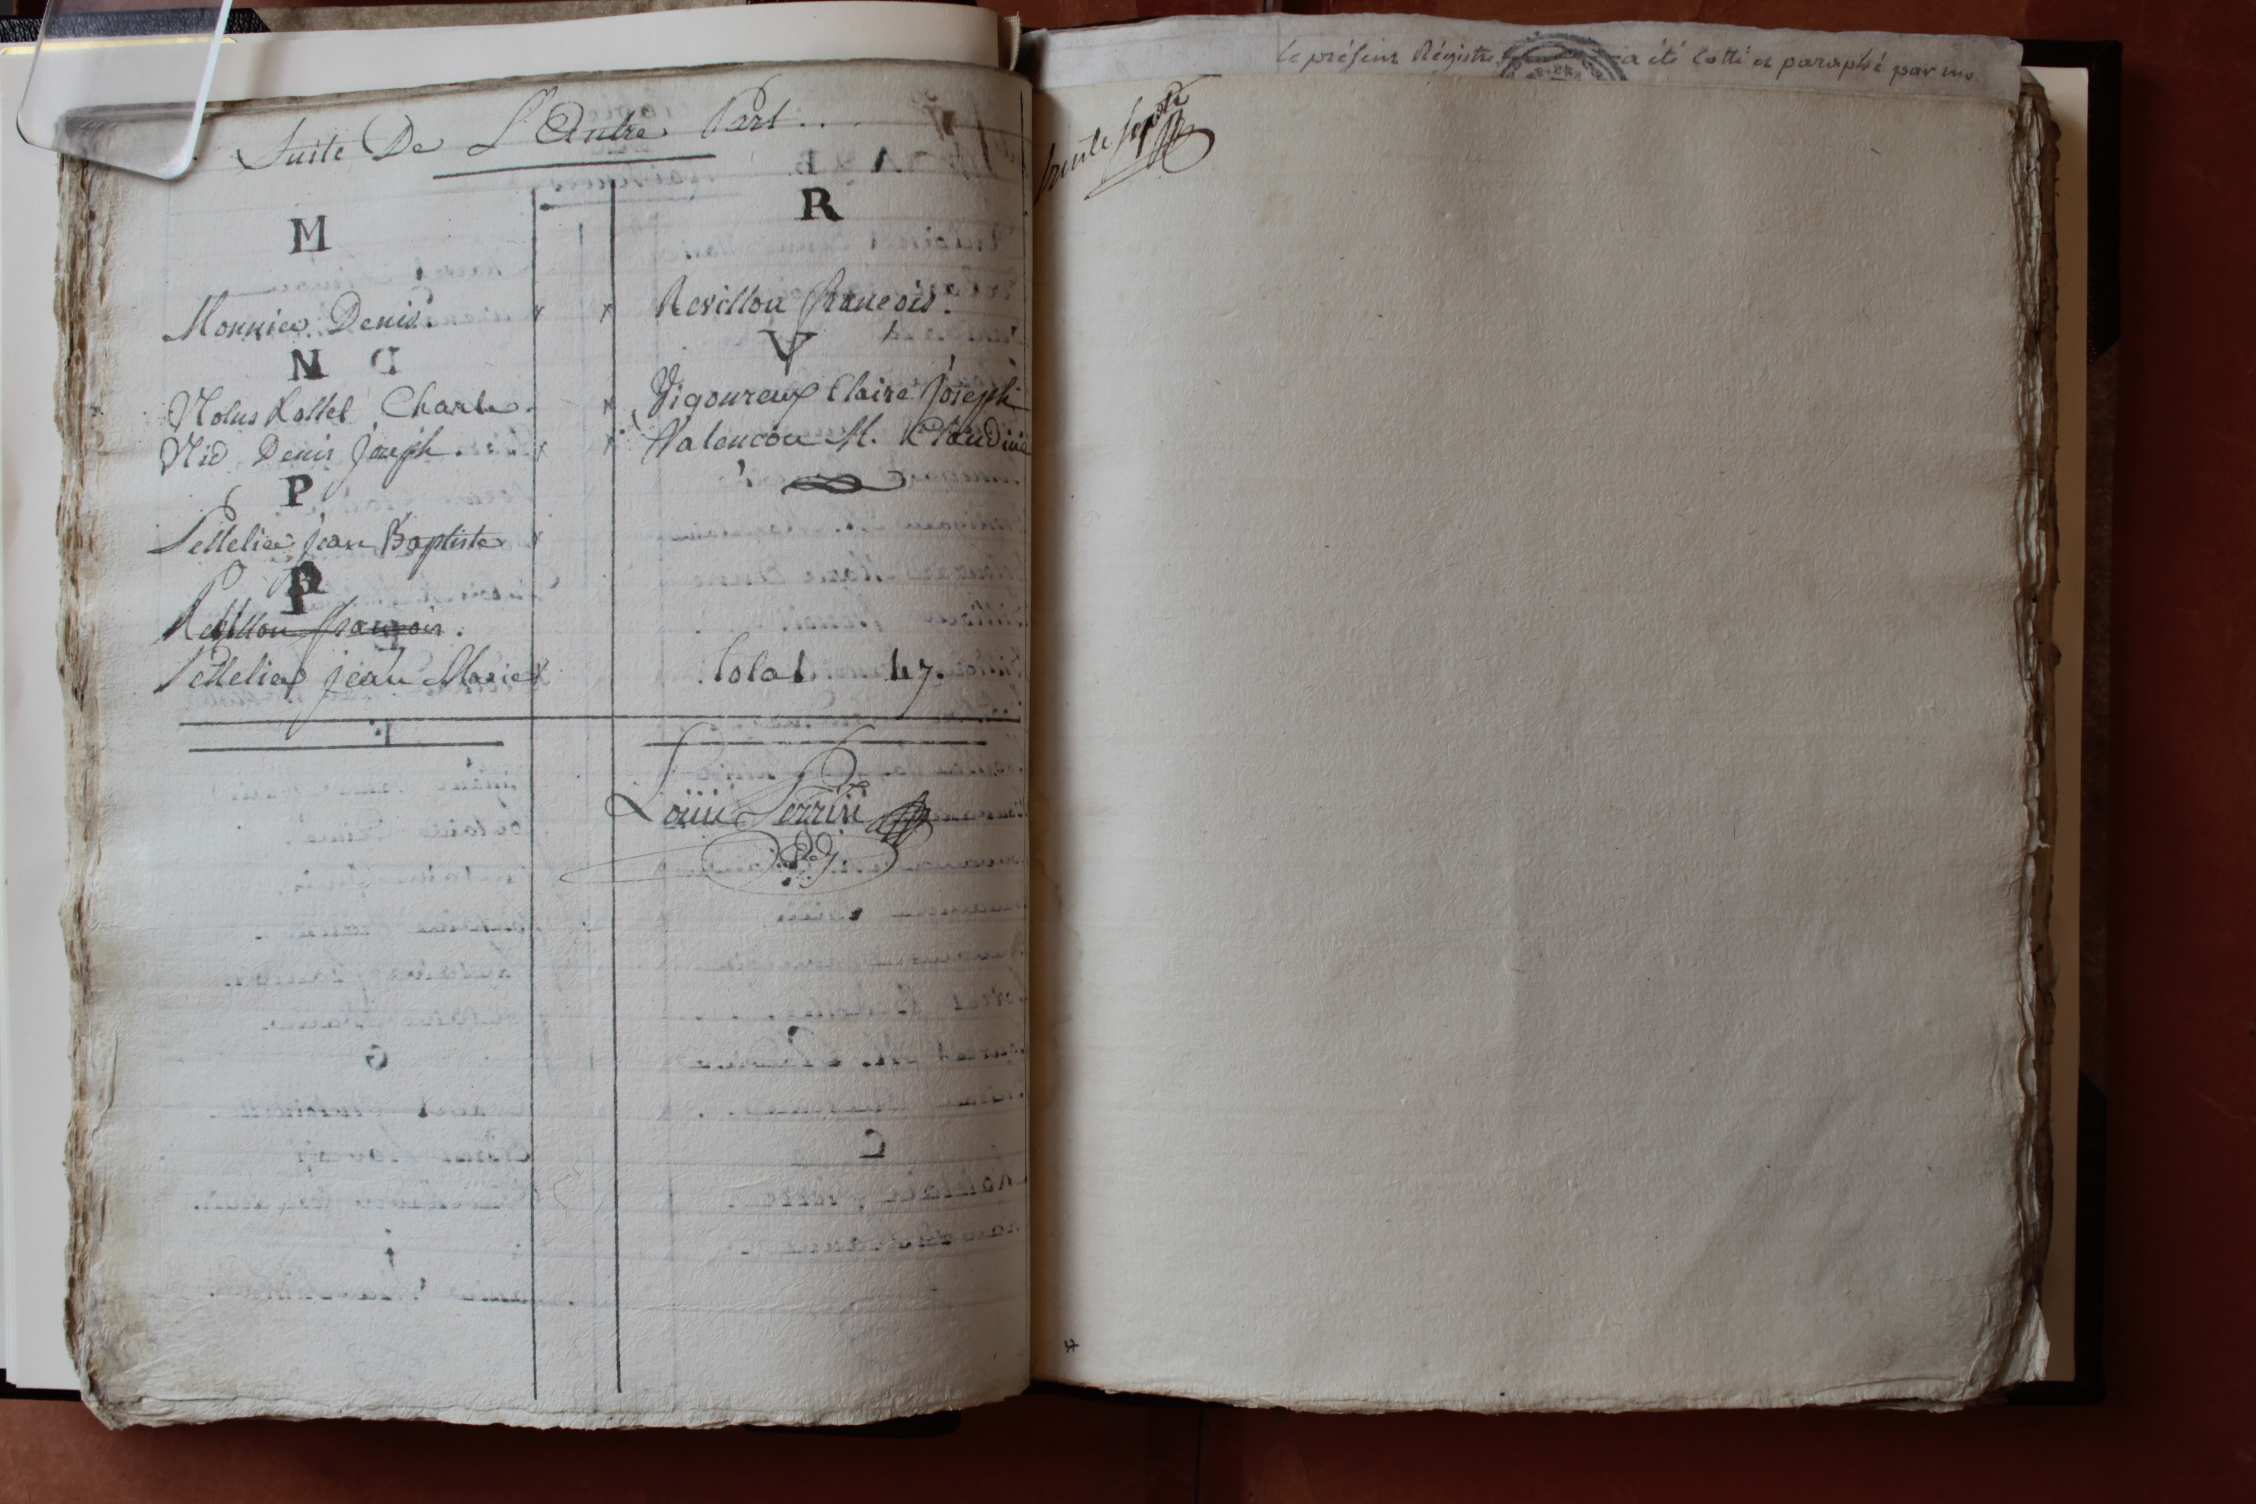 Suite De L'Autre Part...
M
Monnier Denis.
N
Charle
Nid Denis Joseph.
P
Pelletier jean Baptiste
R
P
Revillon françois.
Pelletier jean Marie
R
Revillon françois.
V
Vigoureux Claire Joseph
Valencon M. Claudine
Total 47.
Louis Perrin
trente sept
le présent Régistre a été Cotté et paraphé par